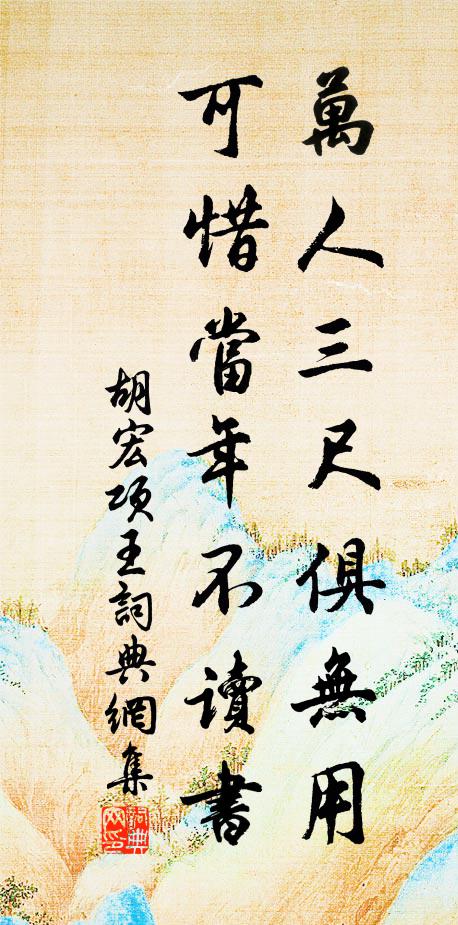 萬人三尺俱無用
可惜當年不讀書
胡宏項王詞典網集
詞典
网印